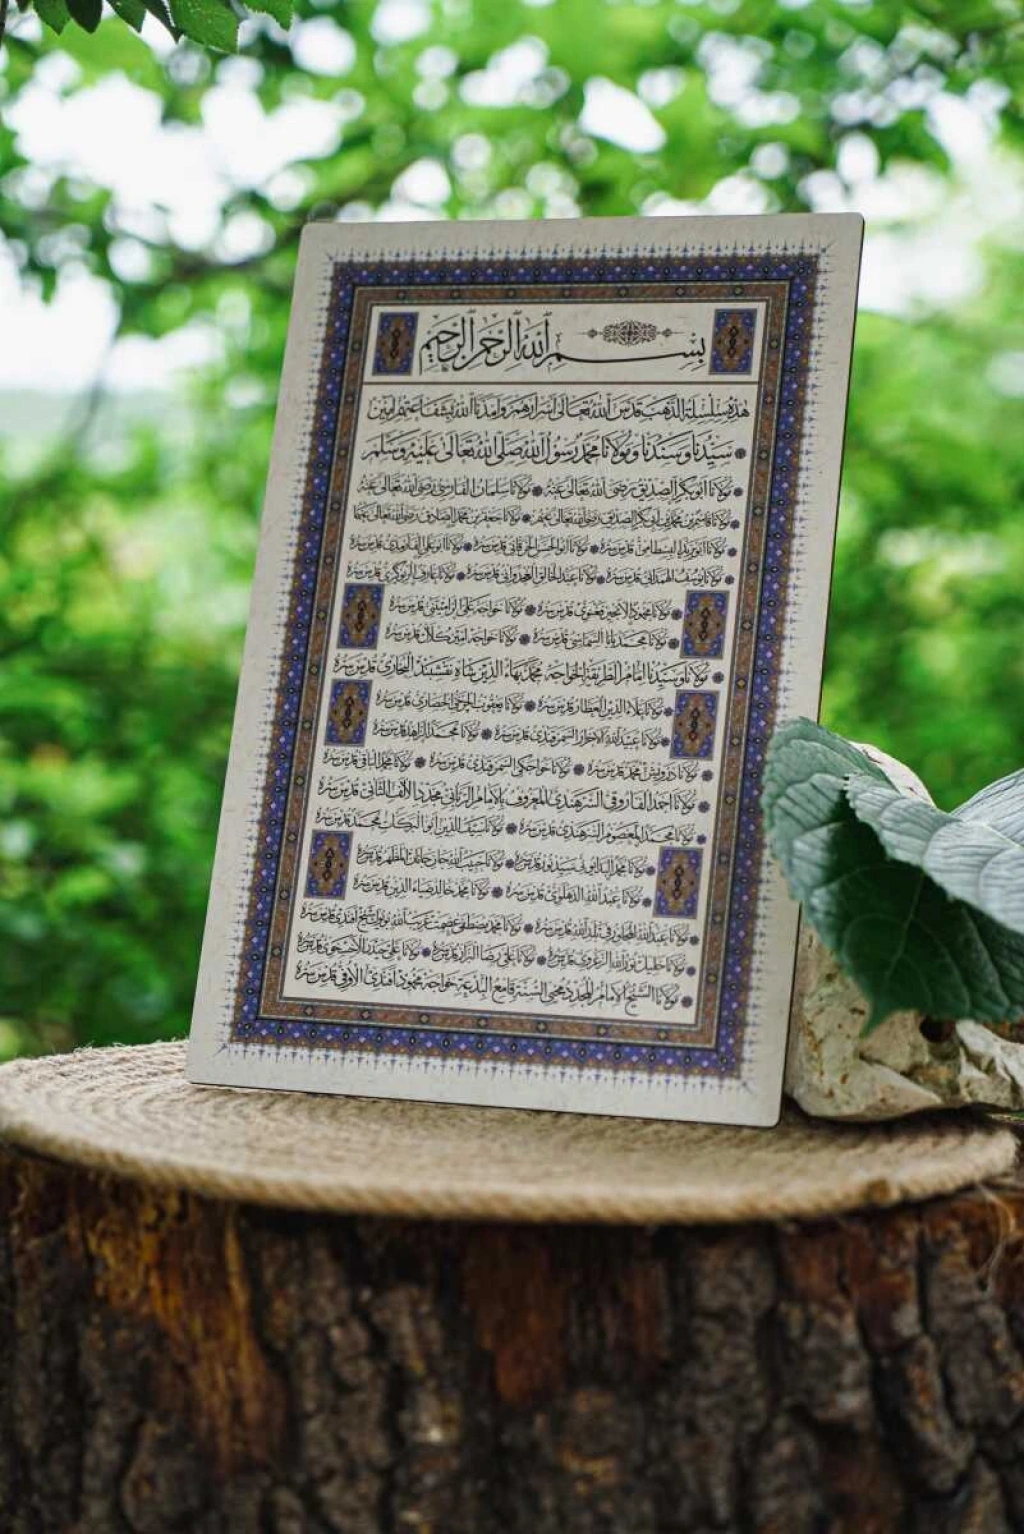 بسم الله الرحمن الرحيم
هذه سلسلة الذهب قدس الله تعالى أسرارهم وامدنا الله بشفاعتهم امين
سيدنا وسندنا ومولانا محمد رسول الله صلى الله تعالى عليه وسلم
مولانا ابو بكر الصديق رضى الله تعالى عنه مولانا سلمان الفارسى رضى الله تعالى عنه
مولانا قاسم بن محمد بن ابى بكر الصديق رضى الله تعالى عنهم مولانا جعفر بن محمد الصادق رضى الله تعالى عنهما
مولانا ابو يزيد البسطامى قدس سره مولانا ابو الحسن الخرقانى قدس سره مولانا ابو على الفارمدى قدس سره
مولانا يوسف الهمدانى قدس سره مولانا عبد الخالق الغجدوانى قدس سره مولانا عارف الريوكرى قدس سره
مولانا محمود الانجير فغنوى قدس سره مولانا خواجه على الراميتنى قدس سره
مولانا محمد بابا السماسى قدس سره مولانا خواجه امير كلال قدس سره
مولانا وسيدنا امام الطريقة الخواجه محمد بهاء الدين شاه نقشبند البخارى قدس سره
مولانا علاء الدين العطار قدس سره مولانا يعقوب الجرخى الحصارى قدس سره
مولانا عبيد الله الاحرار السمرقندى قدس سره مولانا محمد الزاهد قدس سره
مولانا درويش محمد قدس سره مولانا خواجكى السمرقندى قدس سره مولانا محمد الباقى قدس سره
مولانا احمد الفاروقى السرهندى المعروف بالامام الربانى مجدد الالف الثانى قدس سره
مولانا محمد المعصوم السرهندى قدس سره مولانا سيف الدين ابو البركات محمد قدس سره
مولانا محمد البداونى سيد نور قدس سره مولانا حبيب الله جان جانان المظهر قدس سره
مولانا عبد الله الدهلوى قدس سره مولانا محمد خالد ضياء الدين قدس سره
مولانا عبد الله المجاور فى بلد الله قدس سره مولانا محمد مصطفى عصمت غريب الله قدس سره
مولانا خليل نور الله الزغروى قدس سره مولانا على رضا البزاز قدس سره مولانا على حيدر الاخسخوى قدس سره
مولانا الشيخ الامام المجدد محيى السنة قامع البدعة خواجه محمود افندى الاوفى قدس سره